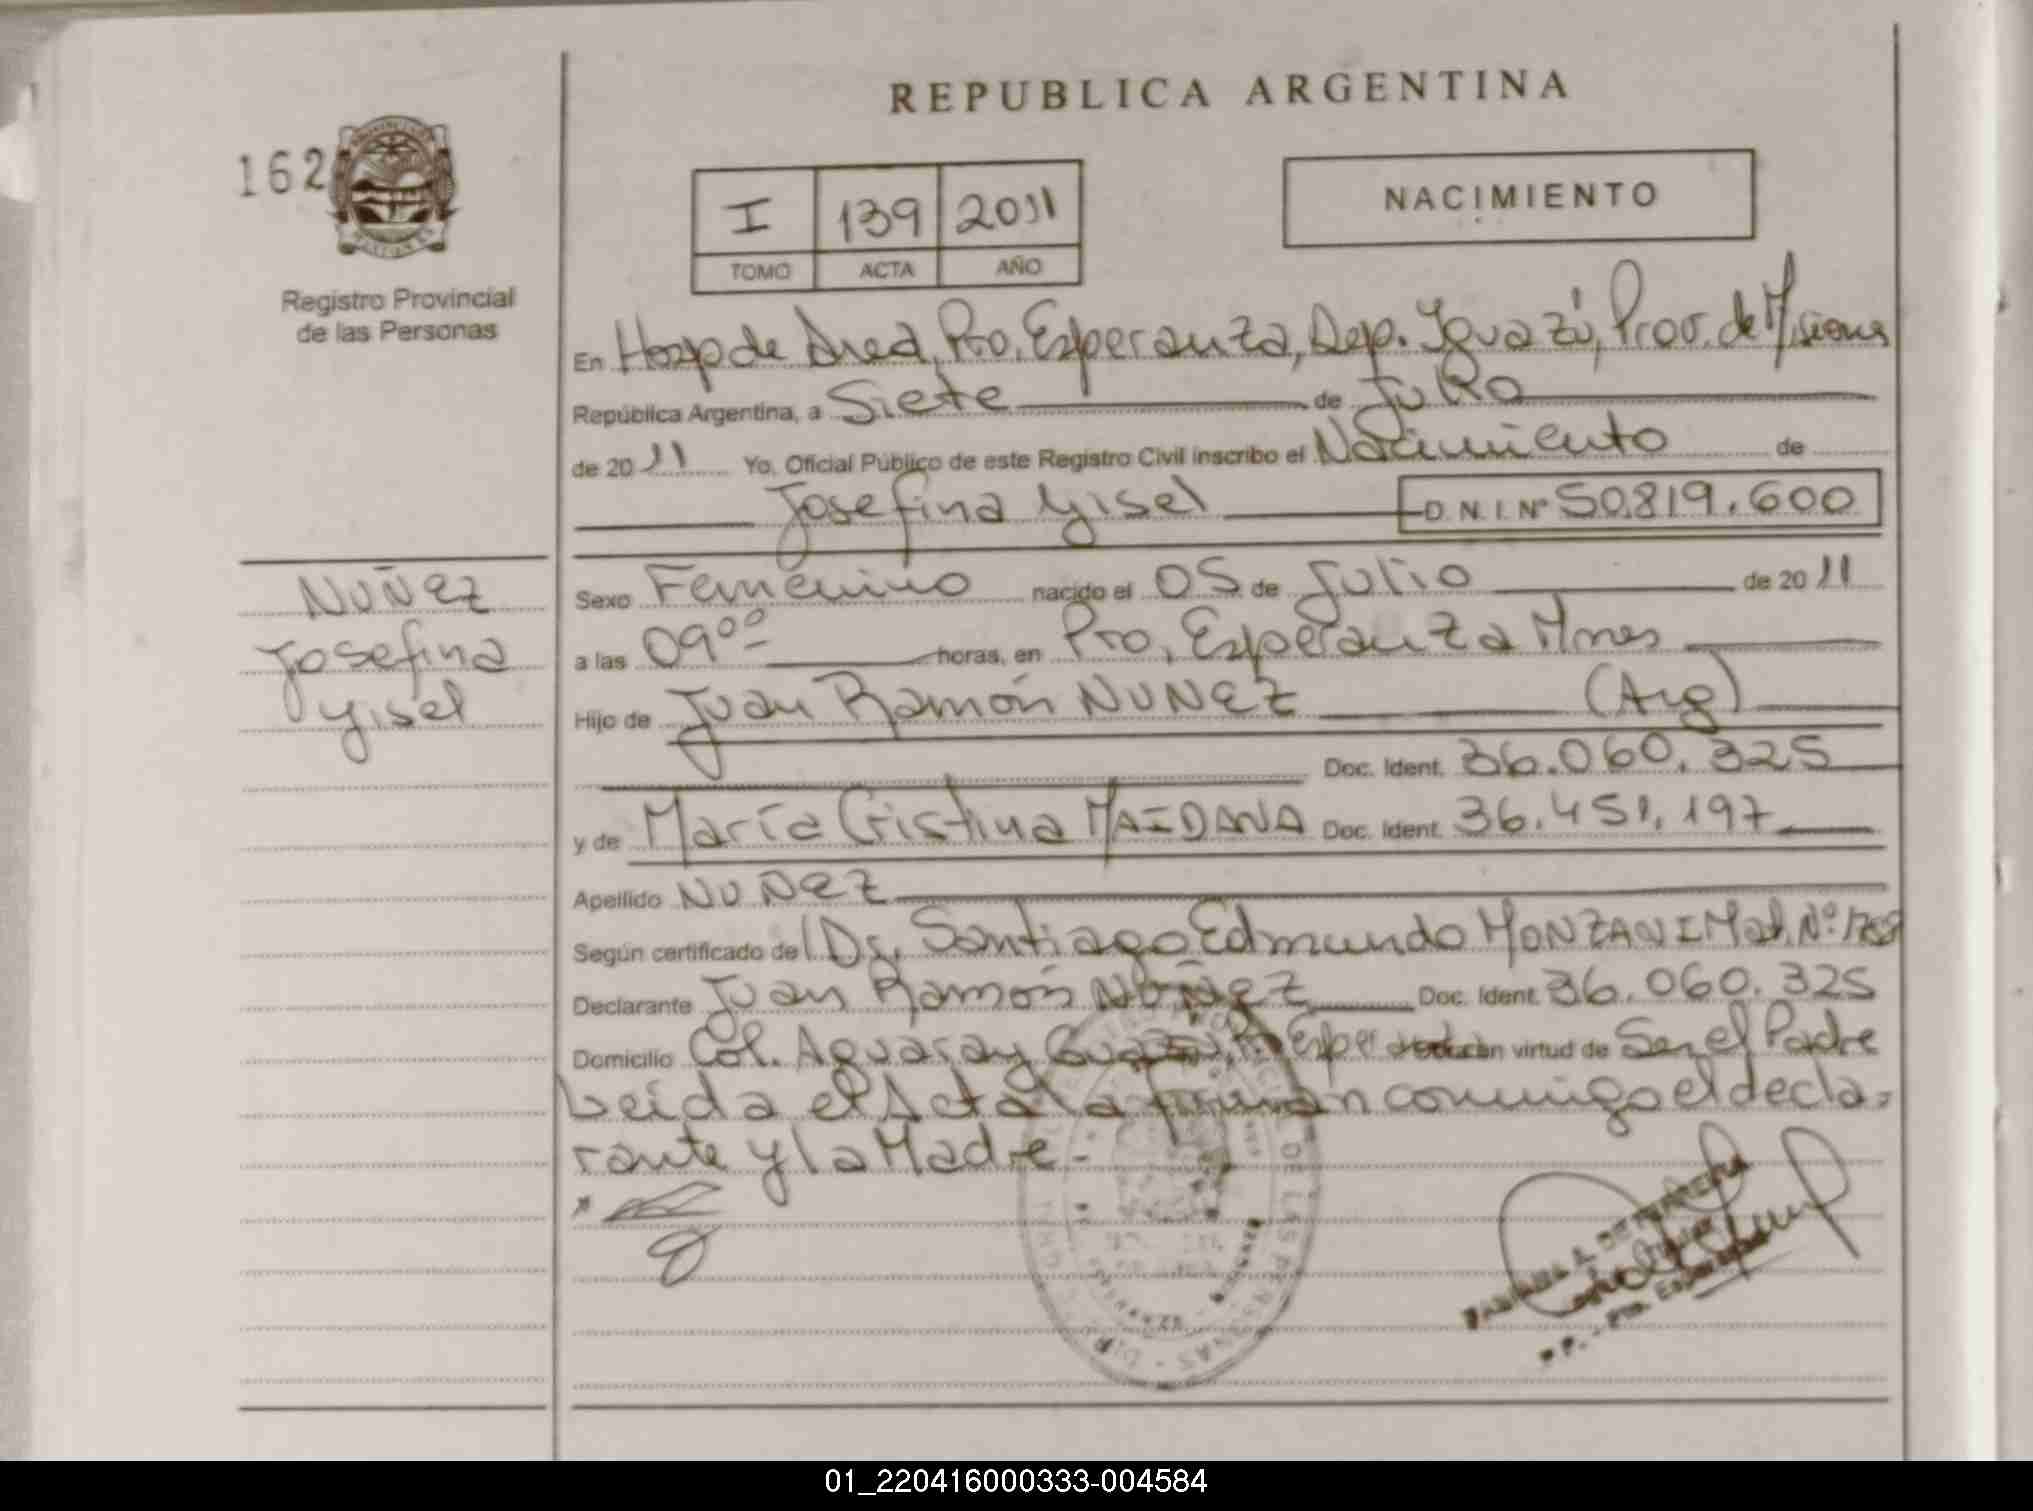 REPUBLICA ARGENTINA
162
Registro Provincial
de las Personas
I 139 2011
TOMO ACTA AÑO
NACIMIENTO
En Hosp de Area, Pto. Esperanza, Dep. Iguazú, Prov. de Misiones
República Argentina, a Siete de Julio
de 2011 Yo, Oficial Público de este Registro Civil inscribo el Nacimiento de
Josefina Yisel D.N.I. Nº 50.819.600
NUÑEZ
Josefina
Yisel
Sexo Femenino nacido el 05 de Julio de 2011
a las 09°° horas, en Pto. Esperanza Mnes
Hijo de Juan Ramón NUÑEZ (Arg)
Doc. Ident. 36.060.325
y de María Cristina MAIDANA Doc. Ident. 36.451.197
Apellido NUÑEZ
Según certificado de Dr. Santiago Edmundo MONZANI Mat. Nº
Declarante Juan Ramón NUÑEZ Doc. Ident. 36.060.325
Domicilio Col. Aguaray Guazú, Pto Esper en virtud de Ser el Padre
Leída el Acta la firman conmigo el decla-
rante y la Madre.-
01_220416000333-004584